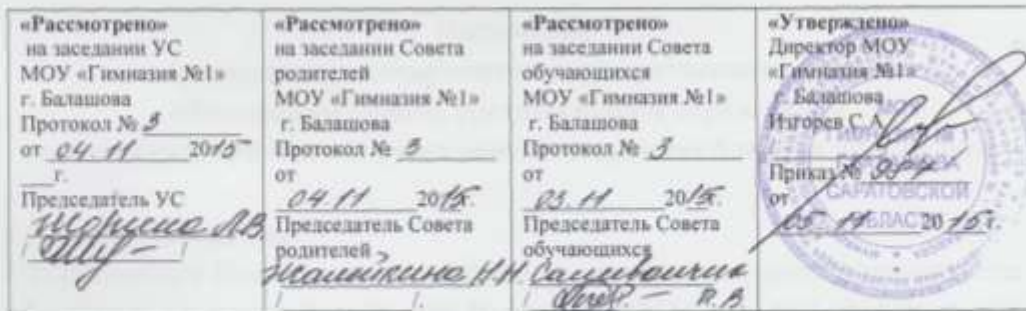 «Рассмотрено»
на заседании УС
МОУ «Гимназия №1»
г. Балашова
Протокол № 3
от 04.11 2015
г.
Председатель УС
Л.В.
«Рассмотрено»
на заседании Совета
родителей
МОУ «Гимназия №1»
г. Балашова
Протокол № 3
от
04.11 2015г.
Председатель Совета
родителей
Н.Н.
«Рассмотрено»
на заседании Совета
обучающихся
МОУ «Гимназия №1»
г. Балашова
Протокол № 3
от
03.11 2015г.
Председатель Совета
обучающихся
«Утверждено»
Директор МОУ
«Гимназия №1»
г. Балашова
Изгорев С.А.
Приказ №
от
05.11 2015г.
САРАТОВСКОЙ